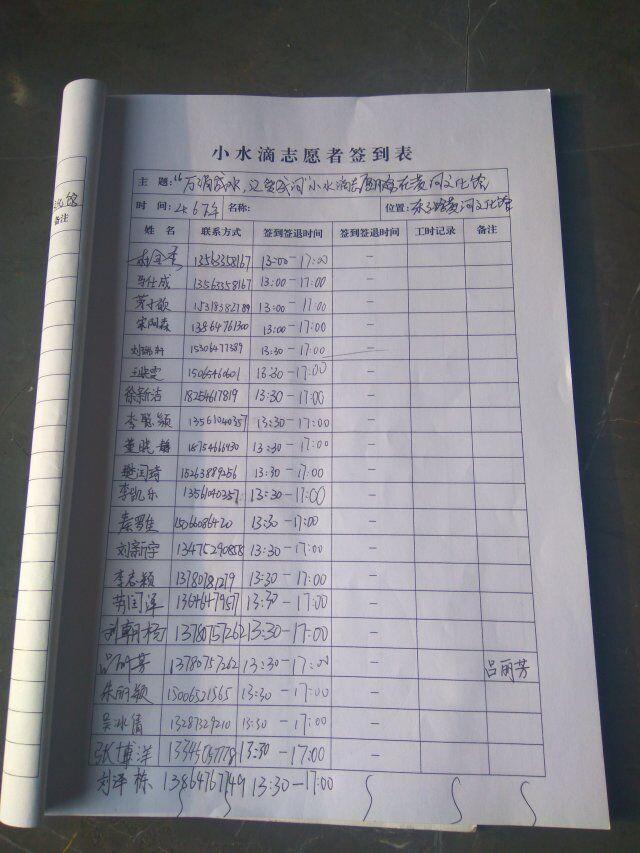 小水滴志愿者签到表
主 题: "万滴成水, 小水滴志愿 在黄河文化馆
时 间: 名称: 位置: 黄河文化馆
姓 名 联系方式 签到签退时间 签到签退时间 工时记录 备注
13563358167 13:00-17:00 -
马仕成 13563358167 13:00-17:00 -
15318382789 13:00-17:00 -
宋阿森 13864761300 13:00-17:00 -
刘 轩 15306477389 13:30-17:00 -
王 雯 15065460601 13:30-17:00 -
徐新洁 18254617819 13:30-17:00 -
李聪颖 13561040357 13:30-17:00 -
董晓 18754666430 13:30-17:00 -
樊国琦 15263889256 13:30-17:00 -
李凯乐 13561040357 13:30-17:00 -
秦罗佳 15066086420 13:30-17:00 -
刘新宇 13475290858 13:30-17:00 -
李春颖 13780781279 13:30-17:00 -
苟闰泽 1364647957 13:30-17:00 -
刘朝杨 13780757262 13:30-17:00 -
吕丽芳 13780757262 13:30-17:00 - 吕丽芳
朱丽颖 15006521565 13:30-17:00 -
吴冰倩 13287329210 13:30-17:00 -
张博洋 13346037778 13:30-17:00 -
刘泽栋 13864767749 13:30-17:00
化馆
备注